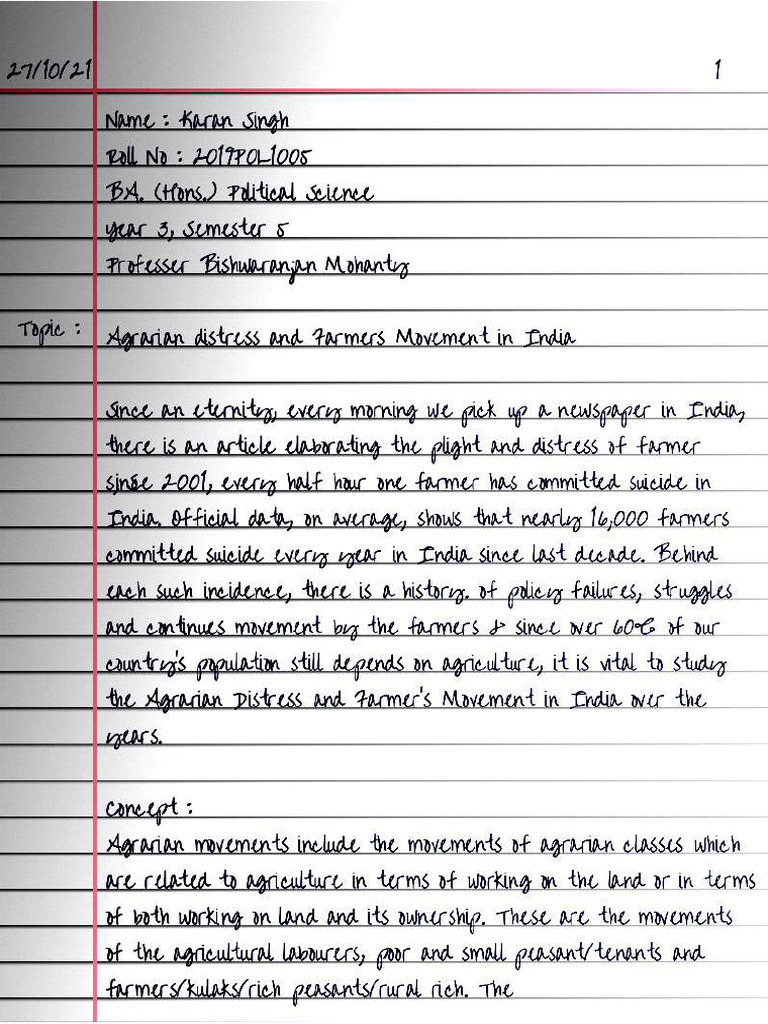 27/10/21 1
Name : Karan Singh
Roll No : 2019POL1005
B.A. (Hons.) Political Science
Year 3, Semester 5
Professer Bishwaranjan Mohanty
Topic : Agrarian distress and Farmers Movement in India
Since an eternity, every morning we pick up a newspaper in India,
there is an article elaborating the plight and distress of farmer
sinse 2001, every half hour one farmer has committed suicide in
India. Official data, on average, shows that nearly 16,000 farmers
committed suicide every year in India since last decade. Behind
each such incidence, there is a history. of policy failures, struggles
and continues movement by the farmers & since over 60% of our
country's population still depends on agriculture, it is vital to study
the Agrarian Distress and Farmer's Movement in India over the
years.
Concept :
Agrarian movements include the movements of agrarian classes which
are related to agriculture in terms of working on the land or in terms
of both working on land and its ownership. These are the movements
of the agricultural labourers, poor and small peasant/tenants and
farmers/kulaks/rich peasants/rural rich. The